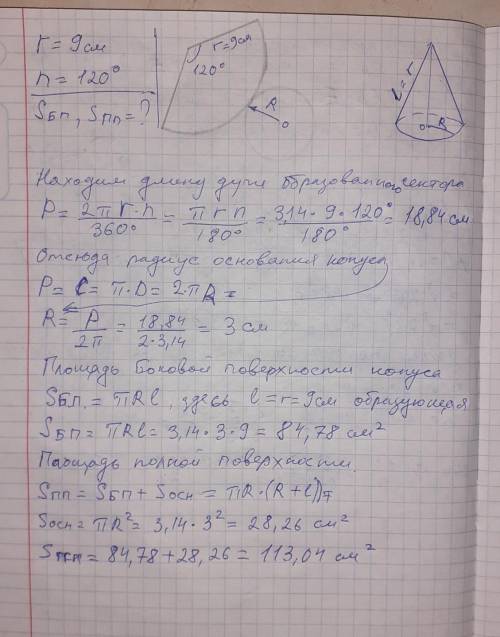 r = 9см
n = 120°
Sбп, Sпп = ?
r = 9см
120°
R
l = r
R
Находим длину дуги образованного сектора
P = 2πr·n/360° = πrn/180° = 3,14·9·120°/180° = 18,84 см
Отсюда радиус основания конуса
P = C = π·D = 2πR =
R = P/2π = 18,84/2·3,14 = 3 см
Площадь боковой поверхности конуса
Sбп. = πRl, здесь l = r = 9см образующая
Sбп = πRl = 3,14·3·9 = 84,78 см²
Площадь полной поверхности.
Sпп = Sбп + Sосн = πR·(R+l)
Sосн = πR² = 3,14·3² = 28,26 см²
Sпп = 84,78 + 28,26 = 113,04 см²